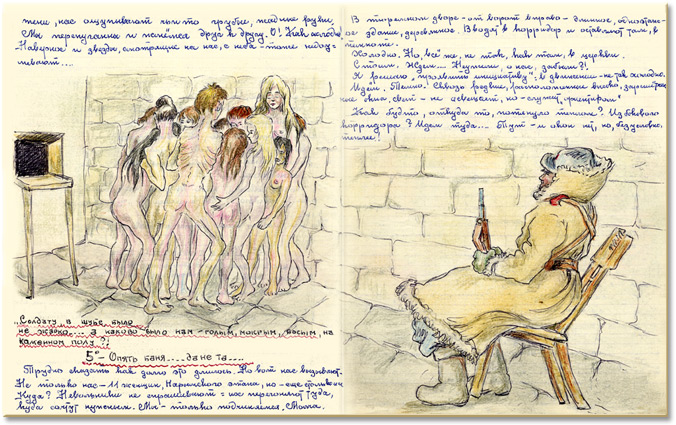 тени, нас ощупывают чьи-то грубые, жадные взгляды.
Мы перепуганы и жмёмся друг к другу. О! Как холодно
Наверное и звёзды, смотрящие на нас, с неба – тоже недоу-
мевают....
„Солдату в шубе было
не жарко.... а каково было нам – голым, мокрым, босым, на
каменном полу?!
5° – Опять баня.... да не та....
Трудно сказать как долго это длилось. Но вот нас выводят.
Не только нас – 11 женщин, Нарымского этапа, но – еще столько
Куда? Невольники не спрашивают: нас перегонят туда,
куда сочтут нужным. Мы – только подчиняемся. Молча.
В тюремном дворе – от ворот вправо – длинное, одноэтаж-
ое здание, деревянное. Вводят в корридор и оставляют там, в
темноте.
Холодно. Но, всё же, не так, как там, в церкви.
Стоим. Ждем.... Неужели о нас, забыли?!
Я решаю, „проявить инициативу": в движении – не так холодно.
Идём. Темно! Сквозь редкие, расположенные высоко, зарешечен-
ные окна, свет – не освещает, но – служит, „ориентиром"
Как будто, откуда то, потянуло теплом? Из бокового
корридора? Идем туда... Тут – и окон нет, но, безусловно,
теплее!